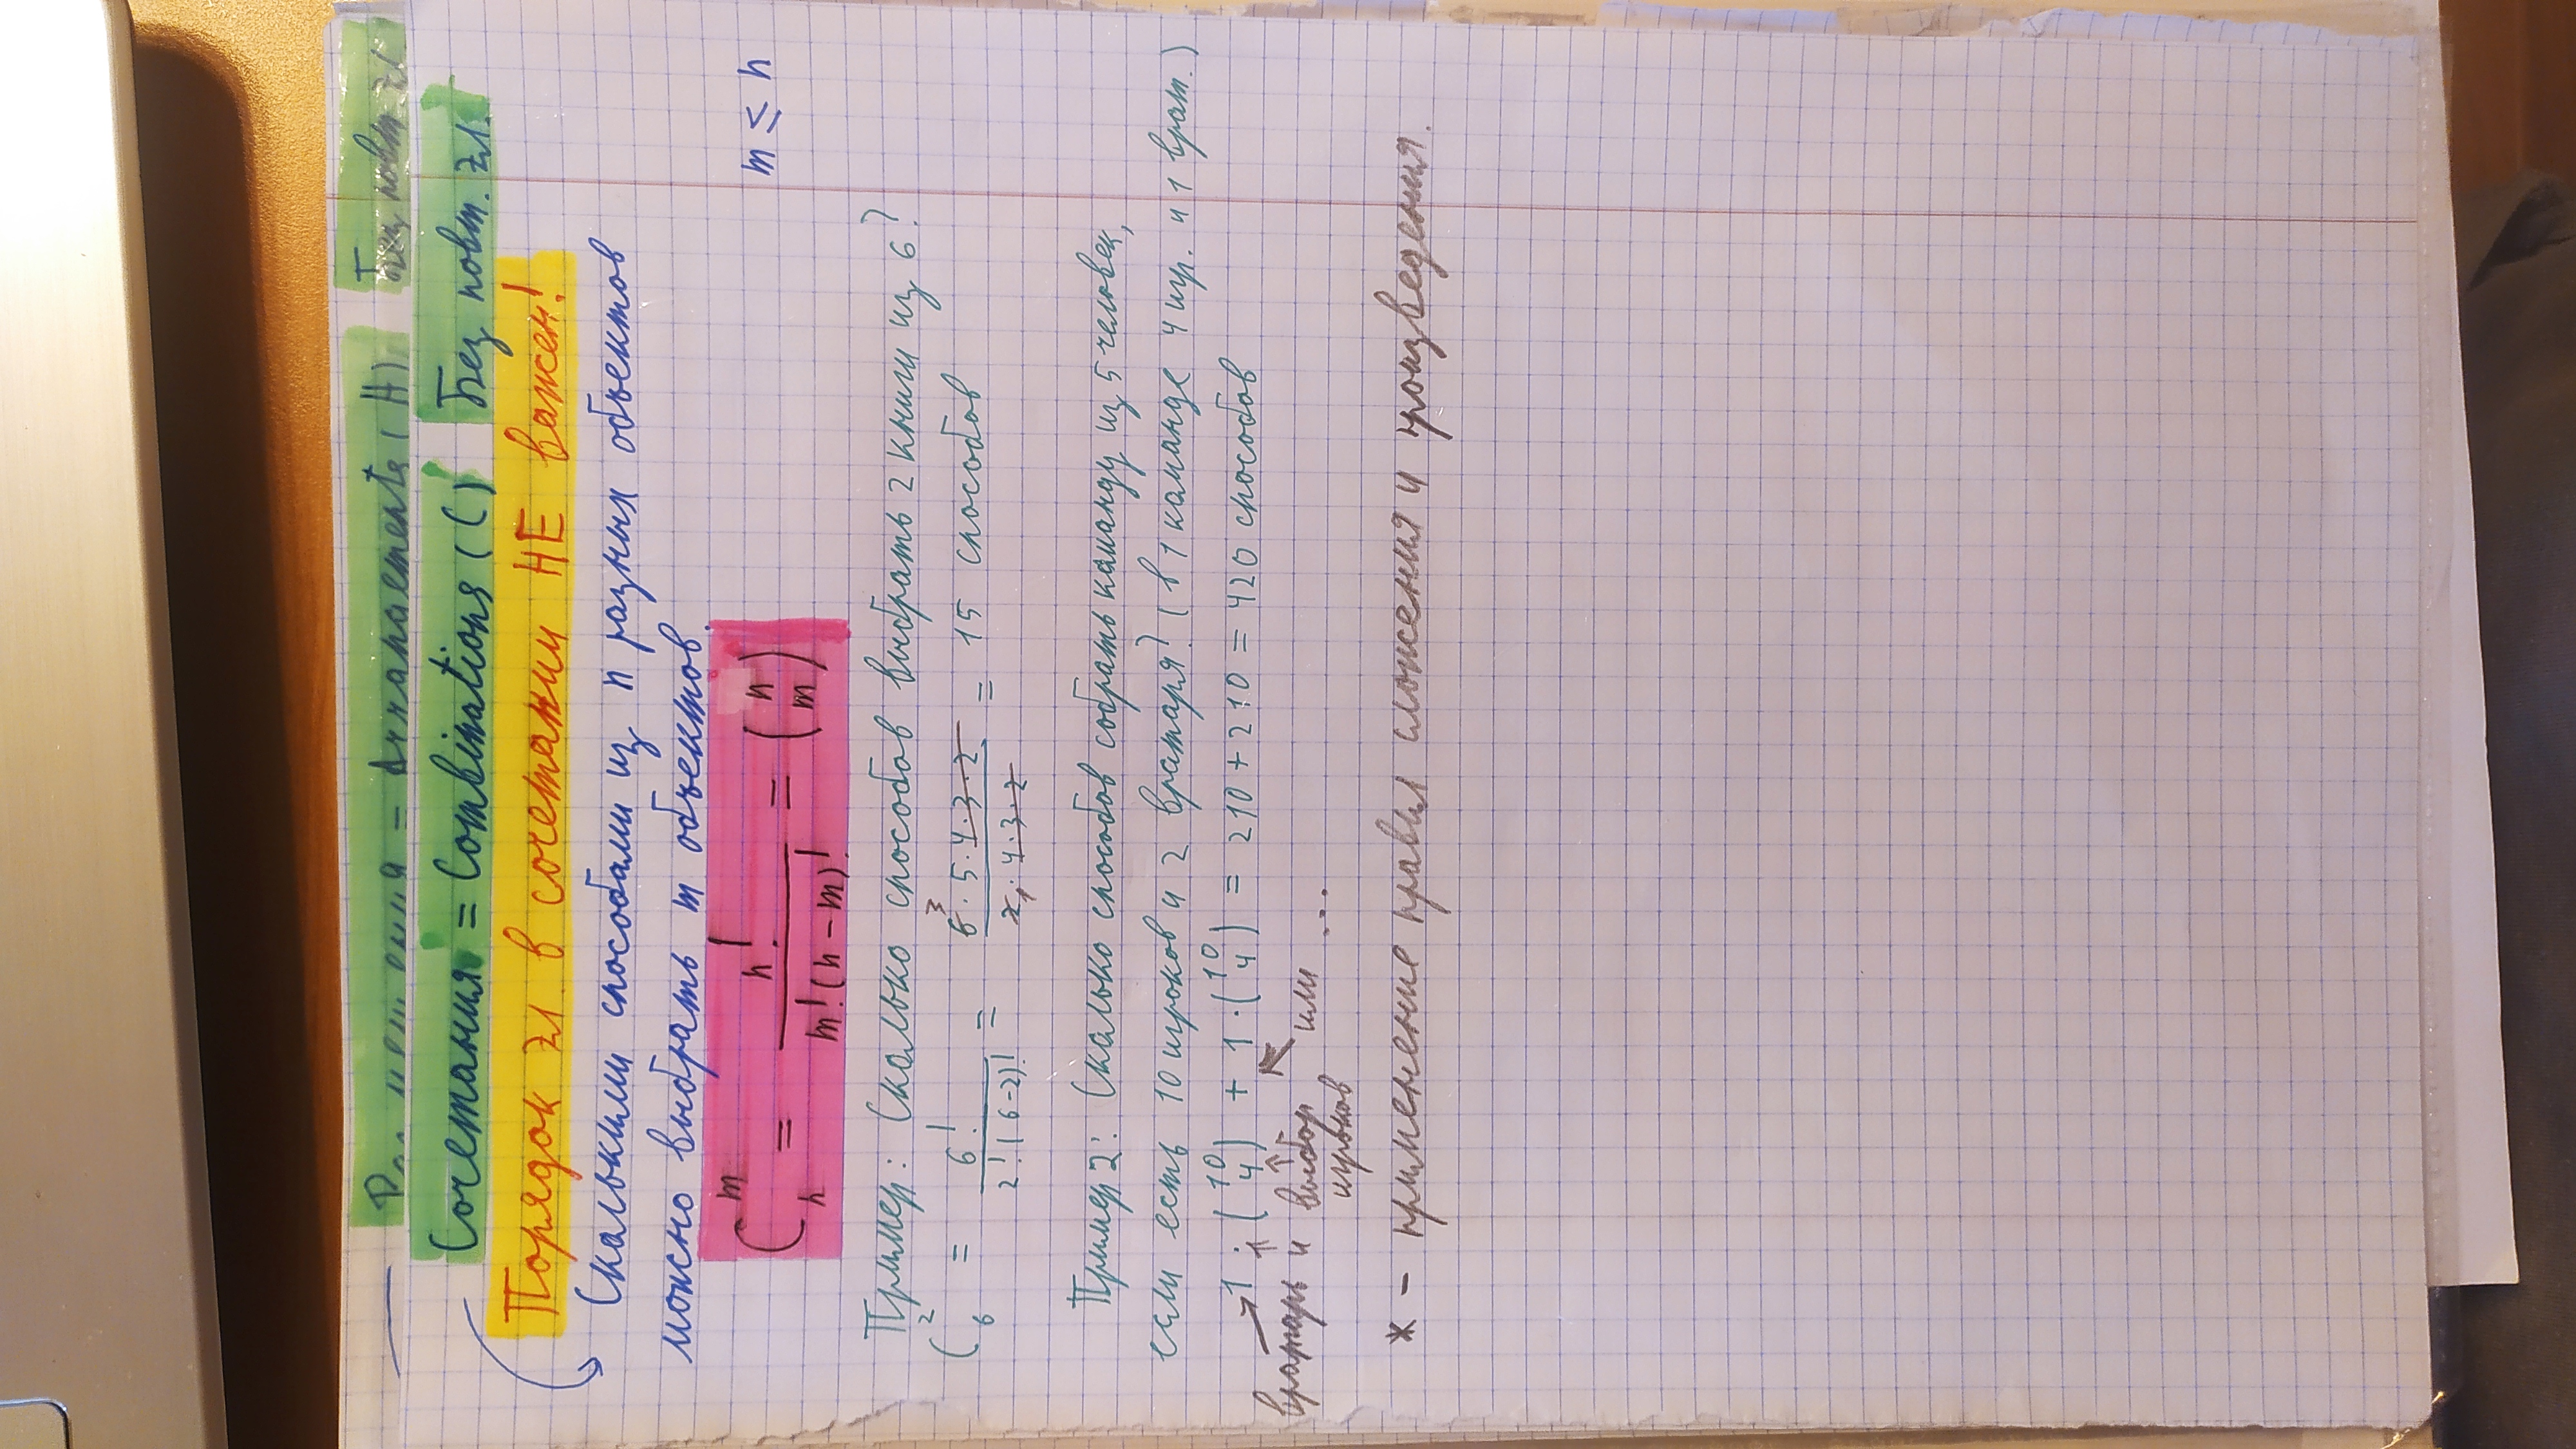 Размещения = Arrangements (A) Без повт. эл.
Сочетания = Combinations (C) Без повт. эл.
Порядок эл. в сочетании НЕ важен!
Сколькими способами из n разных объектов
можно выбрать m объектов.
C_n^m = n! / m!(n-m)! = (n m) m ≤ n
Пример: Сколько способов выбрать 2 книги из 6?
C_6^2 = 6! / 2!(6-2)! = 6 3 · 5 · 4 · 3 · 2 / 2 1 · 4 · 3 · 2 = 15 способов
Пример 2: Сколько способов собрать команду из 5 человек,
если есть 10 игроков и 2 вратаря? (в 1 команде 4 игр. и 1 врат.)
1 · (10 4) + 1 · (10 4) = 210 + 210 = 420 способов
вратарь и выбор или ...
игроков
* - применение правил сложения и произведения.